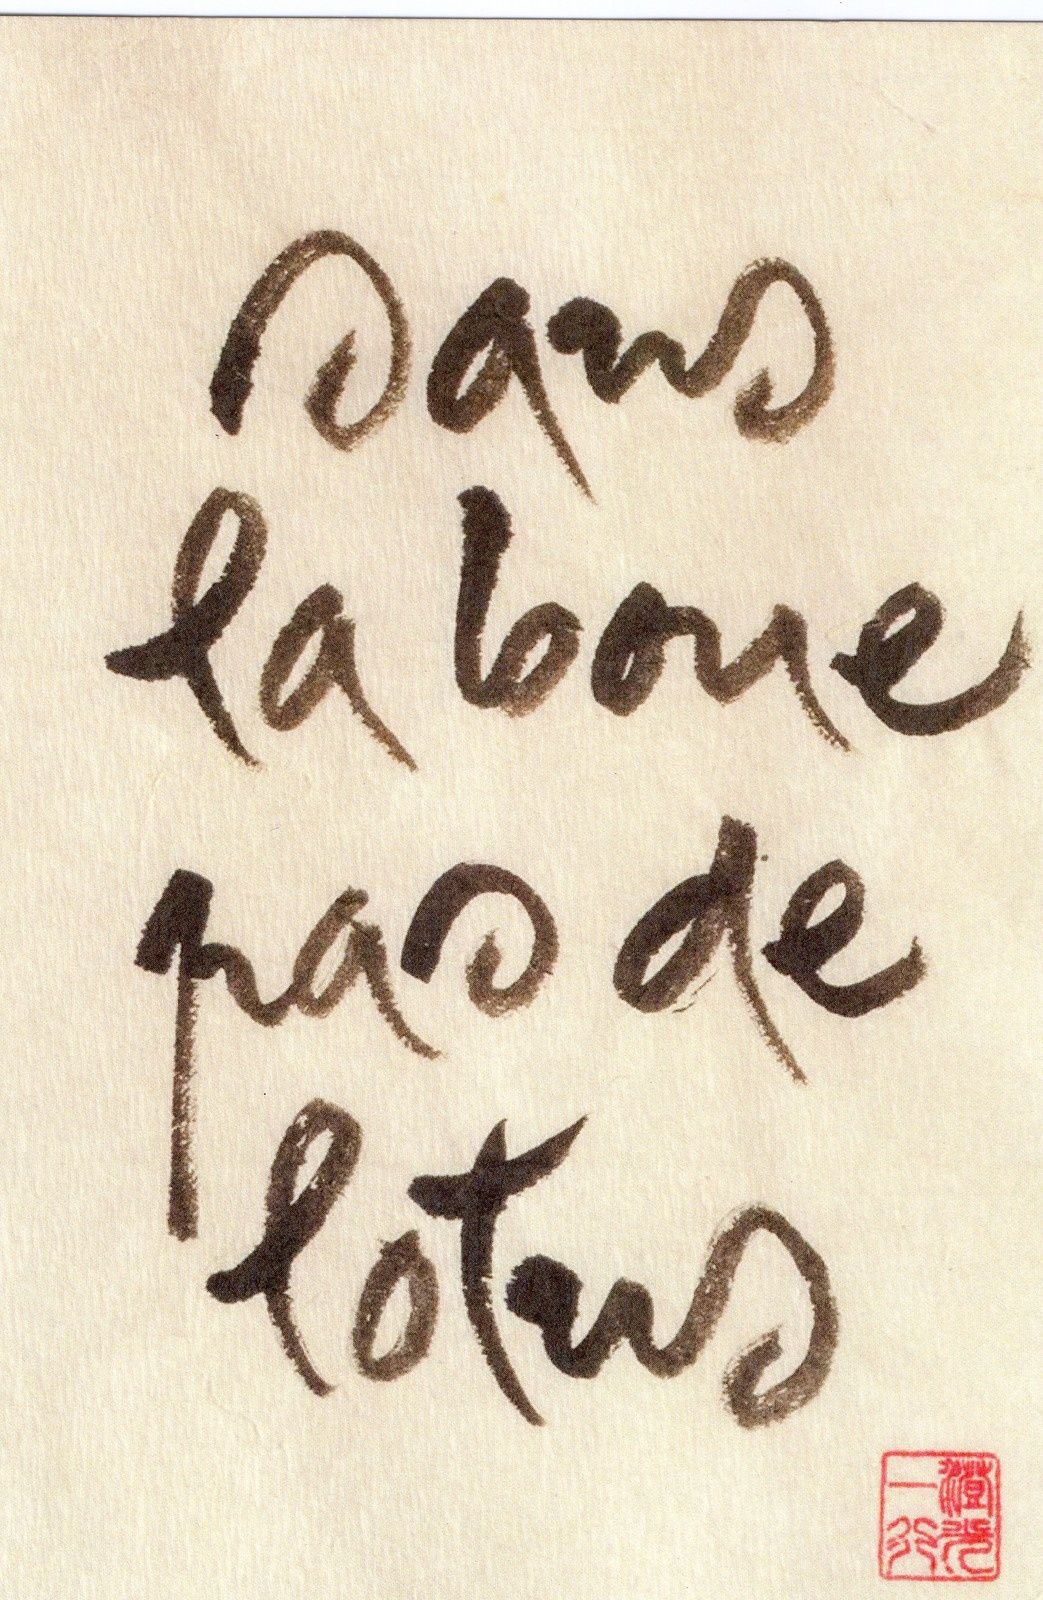 sans
la boue
pas de
lotus
澄光
一行